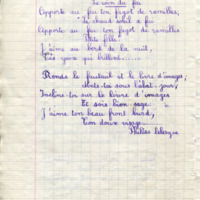 Le coin du feu
Apporte au feu ton fagot de ramilles,
Le chaud soleil a fui
Apporte au feu ton fagot de ramilles
Petite fille.
J'aime au bord de la nuit,
Tes yeux qui brillent......
Prends le fauteuil et le livre d'images;
sous l'abat-jour,
Incline-toi sur le livre d'images
Et sois bien sage.
J'aime ton beau front lourd,
Ton doux visage.
Philéas Lebesgue